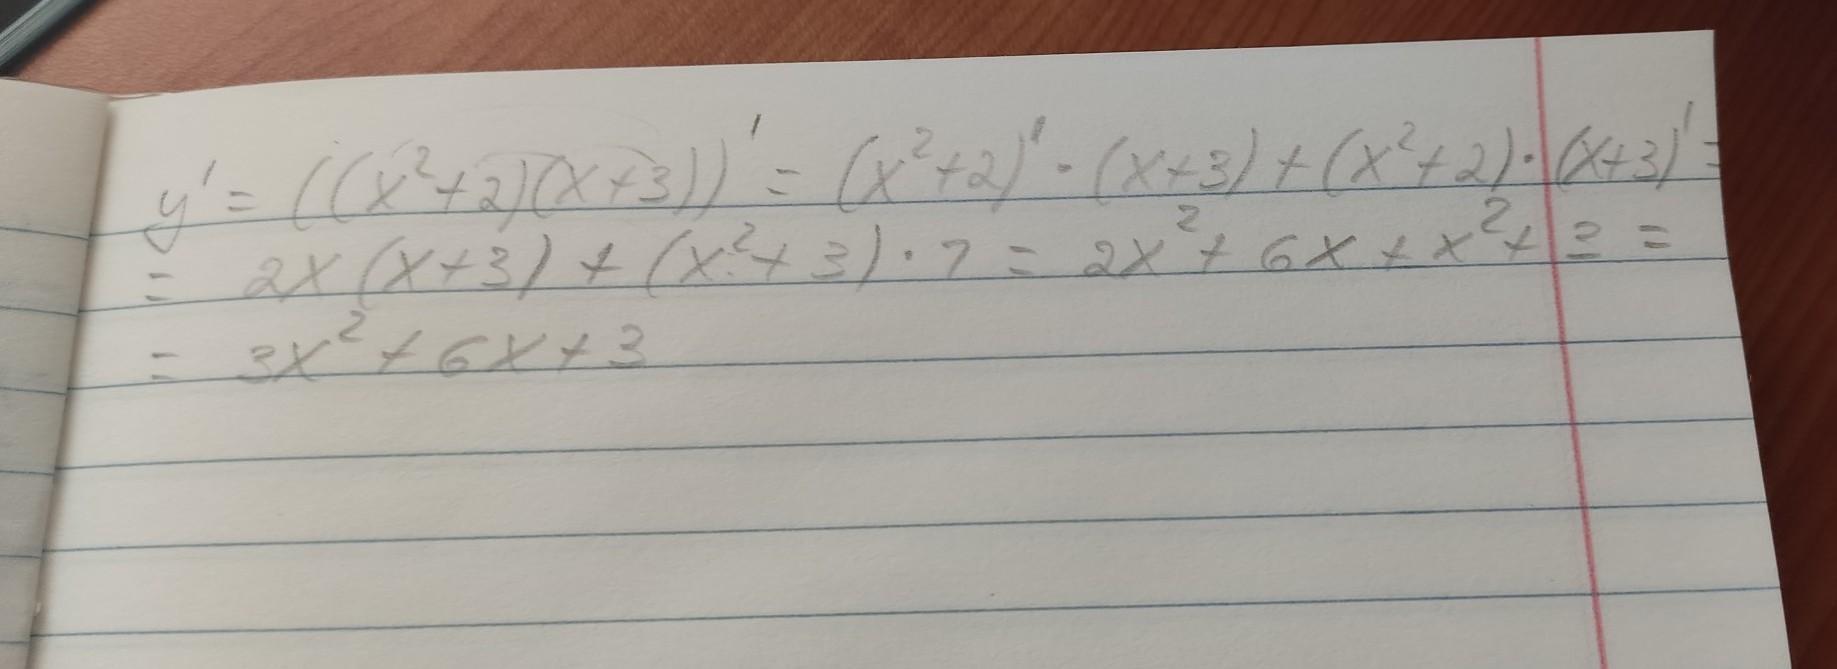 y' = ((x²+2)(x+3))' = (x²+2)' · (x+3) + (x²+2) · (x+3)' =
= 2x(x+3) + (x²+3) · 1 = 2x² + 6x + x² + 3 =
= 3x² + 6x + 3